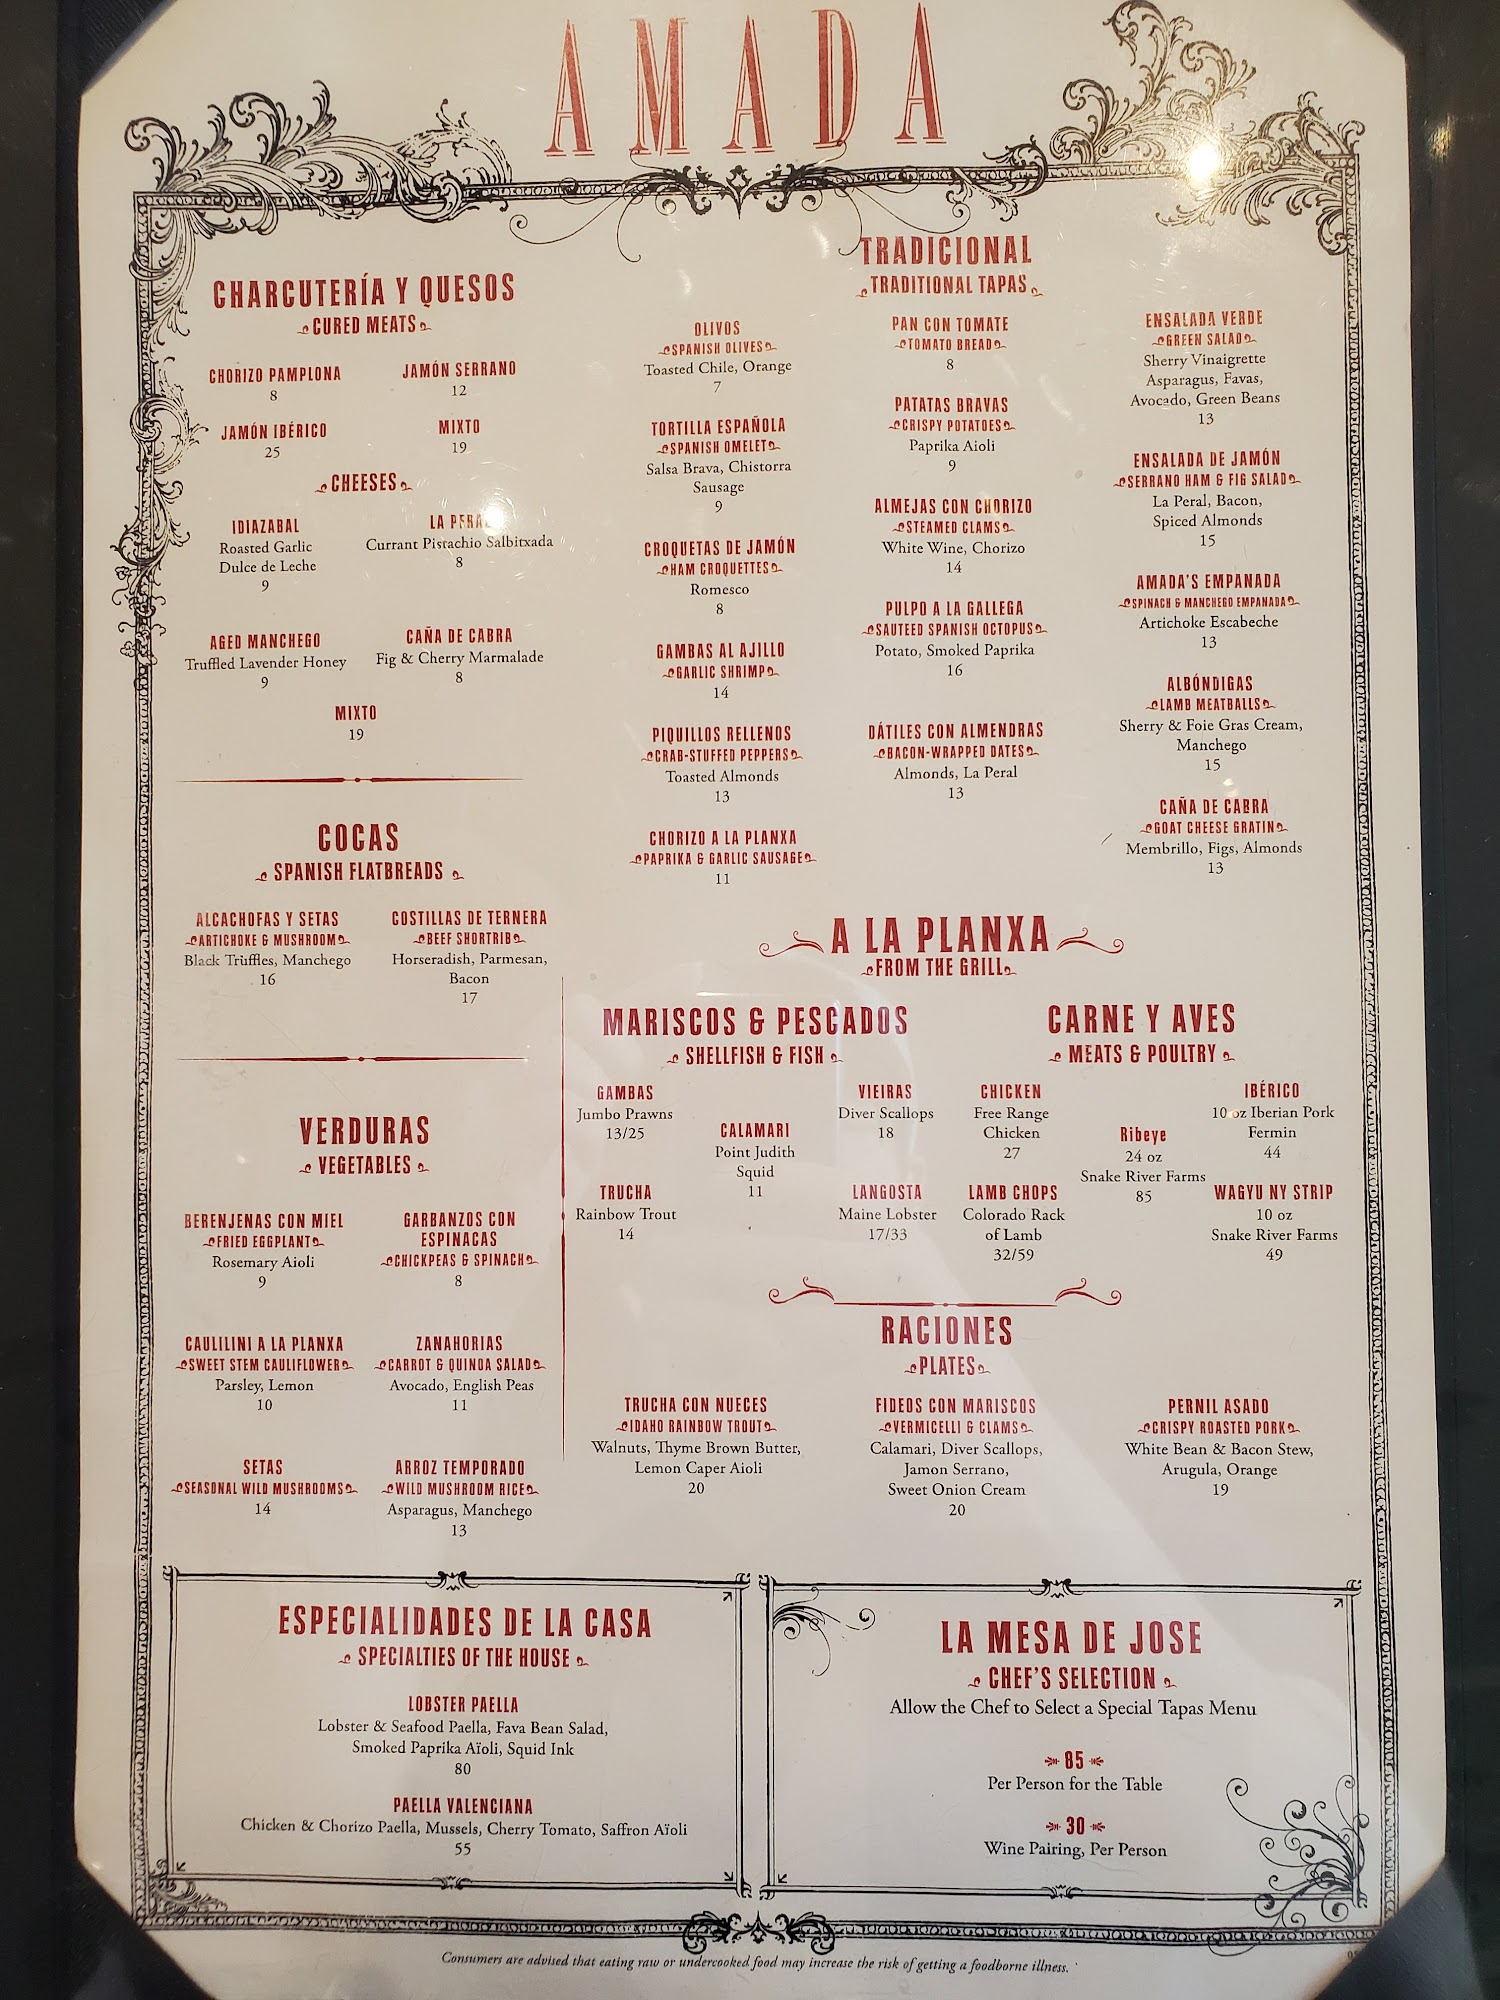 AMADA
CHARCUTERÍA Y QUESOS
CURED MEATS
CHORIZO PAMPLONA
8
JAMÓN SERRANO
12
JAMÓN IBÉRICO
25
MIXTO
19
CHEESES
IDIAZABAL
Roasted Garlic
Dulce de Leche
9
LA PERAL
Currant Pistachio Salbitxada
8
AGED MANCHEGO
Truffled Lavender Honey
9
CAÑA DE CABRA
Fig & Cherry Marmalade
8
MIXTO
19
COCAS
SPANISH FLATBREADS
ALCACHOFAS Y SETAS
ARTICHOKE & MUSHROOM
Black Truffles, Manchego
16
COSTILLAS DE TERNERA
BEEF SHORTRIB
Horseradish, Parmesan,
Bacon
17
VERDURAS
VEGETABLES
BERENJENAS CON MIEL
FRIED EGGPLANT
Rosemary Aioli
9
GARBANZOS CON
ESPINACAS
CHICKPEAS & SPINACH
8
CAULILINI A LA PLANXA
SWEET STEM CAULIFLOWER
Parsley, Lemon
10
ZANAHORIAS
CARROT & QUINOA SALAD
Avocado, English Peas
11
SETAS
SEASONAL WILD MUSHROOMS
14
ARROZ TEMPORADO
WILD MUSHROOM RICE
Asparagus, Manchego
13
TRADICIONAL
TRADITIONAL TAPAS
OLIVOS
SPANISH OLIVES
Toasted Chile, Orange
7
TORTILLA ESPAÑOLA
SPANISH OMELET
Salsa Brava, Chistorra
Sausage
9
CROQUETAS DE JAMÓN
HAM CROQUETTES
Romesco
8
GAMBAS AL AJILLO
GARLIC SHRIMP
14
PIQUILLOS RELLENOS
CRAB-STUFFED PEPPERS
Toasted Almonds
13
CHORIZO A LA PLANXA
PAPRIKA & GARLIC SAUSAGE
11
PAN CON TOMATE
TOMATO BREAD
8
PATATAS BRAVAS
CRISPY POTATOES
Paprika Aioli
9
ALMEJAS CON CHORIZO
STEAMED CLAMS
White Wine, Chorizo
14
PULPO A LA GALLEGA
SAUTEED SPANISH OCTOPUS
Potato, Smoked Paprika
16
DÁTILES CON ALMENDRAS
BACON-WRAPPED DATES
Almonds, La Peral
13
ENSALADA VERDE
GREEN SALAD
Sherry Vinaigrette
Asparagus, Favas,
Avocado, Green Beans
13
ENSALADA DE JAMÓN
SERRANO HAM & FIG SALAD
La Peral, Bacon,
Spiced Almonds
15
AMADA'S EMPANADA
SPINACH & MANCHEGO EMPANADA
Artichoke Escabeche
13
ALBÓNDIGAS
LAMB MEATBALLS
Sherry & Foie Gras Cream,
Manchego
15
CAÑA DE CABRA
GOAT CHEESE GRATIN
Membrillo, Figs, Almonds
13
A LA PLANXA
FROM THE GRILL
MARISCOS & PESCADOS
SHELLFISH & FISH
GAMBAS
Jumbo Prawns
13/25
TRUCHA
Rainbow Trout
14
CALAMARI
Point Judith
Squid
11
VIEIRAS
Diver Scallops
18
LANGOSTA
Maine Lobster
17/33
CARNE Y AVES
MEATS & POULTRY
CHICKEN
Free Range
Chicken
27
LAMB CHOPS
Colorado Rack
of Lamb
32/59
Ribeye
24 oz
Snake River Farms
85
IBÉRICO
10 oz Iberian Pork
Fermin
44
WAGYU NY STRIP
10 oz
Snake River Farms
49
RACIONES
PLATES
TRUCHA CON NUECES
IDAHO RAINBOW TROUT
Walnuts, Thyme Brown Butter,
Lemon Caper Aioli
20
FIDEOS CON MARISCOS
VERMICELLI & CLAMS
Calamari, Diver Scallops,
Jamon Serrano,
Sweet Onion Cream
20
PERNIL ASADO
CRISPY ROASTED PORK
White Bean & Bacon Stew,
Arugula, Orange
19
ESPECIALIDADES DE LA CASA
SPECIALTIES OF THE HOUSE
LOBSTER PAELLA
Lobster & Seafood Paella, Fava Bean Salad,
Smoked Paprika Aïoli, Squid Ink
80
PAELLA VALENCIANA
Chicken & Chorizo Paella, Mussels, Cherry Tomato, Saffron Aïoli
55
LA MESA DE JOSE
CHEF'S SELECTION
Allow the Chef to Select a Special Tapas Menu
85
Per Person for the Table
30
Wine Pairing, Per Person
Consumers are advised that eating raw or undercooked food may increase the risk of getting a foodborne illness.